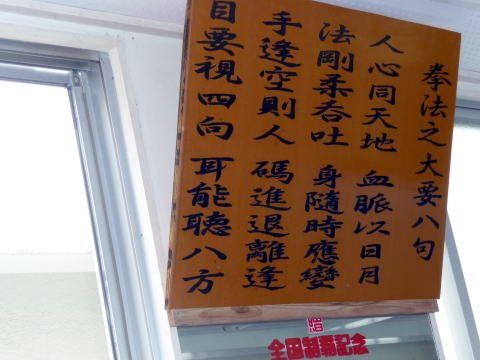 拳法之大要八句
人心同天地 血脈以日月
法剛柔呑吐 身隨時應變
手逢空則人 碼進退離逢
目要視四向 耳能聽八方
贈
全国制覇記念